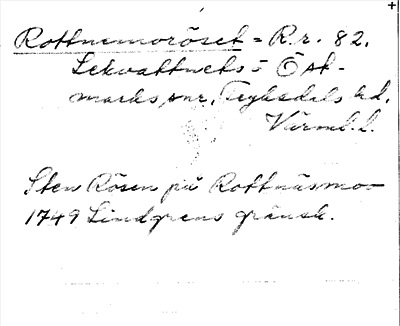 Rottnemoröset = R.r. 82.
Lekvattnets - Öst-
marks snr, Fryksdals hd,
Värml. l.
Sten Rösen på Rottnäsmon
1749 Lindgrens gränsk.